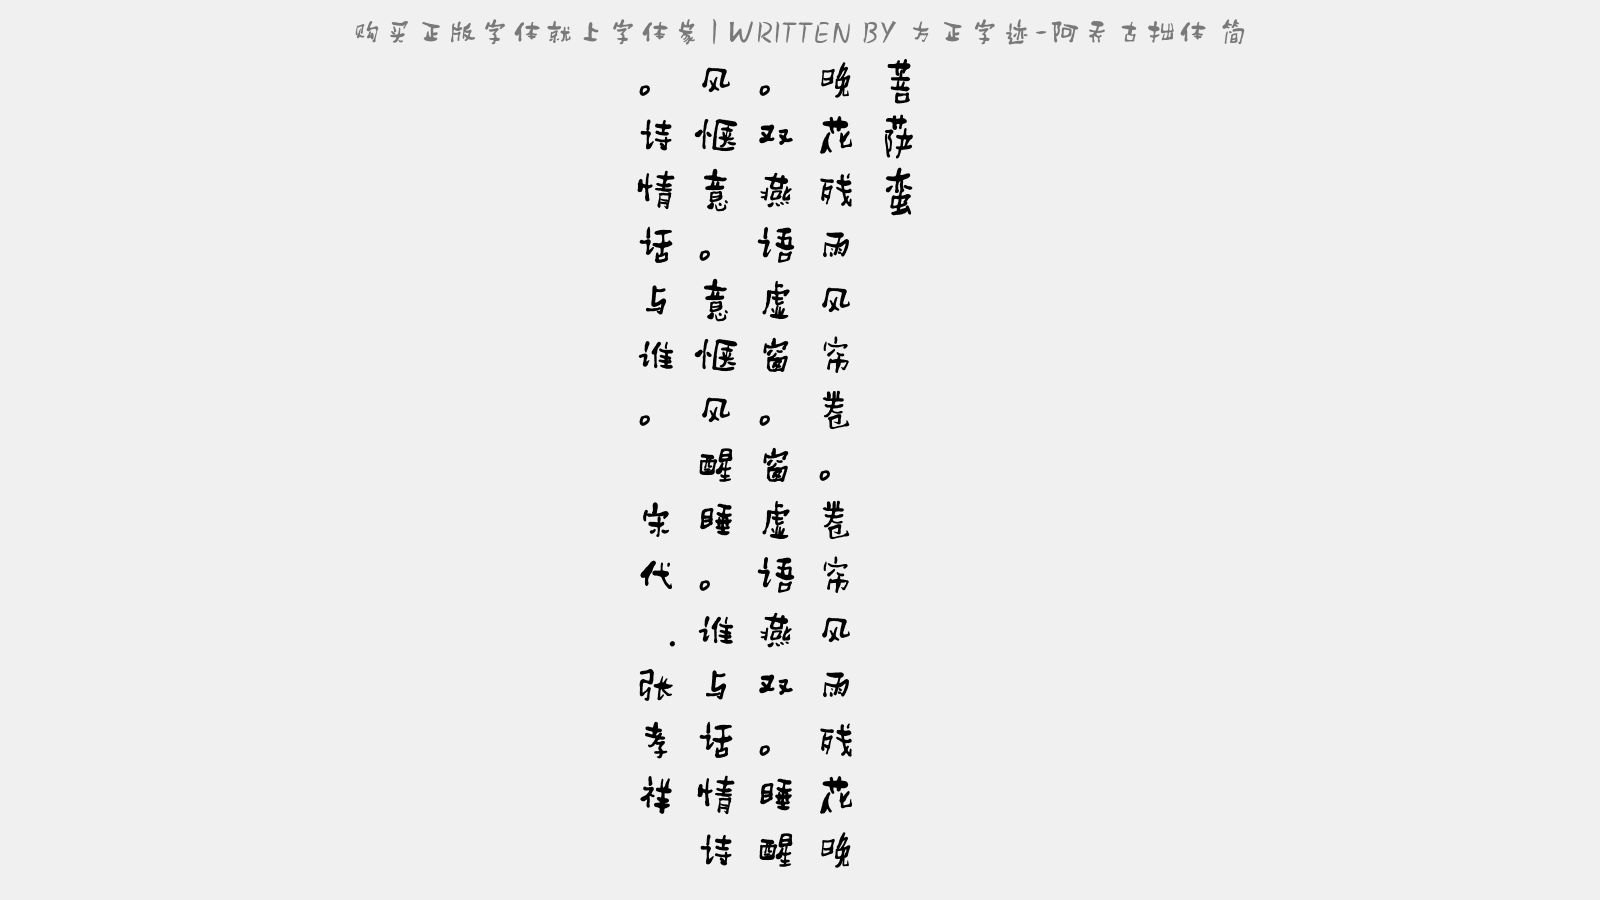 购买正版字体就上字体家|WRITTEN BY 方正字迹-阿吞古拙体 简
菩萨蛮
晚花残雨风帘卷。卷帘风雨残花晚
。双燕语虚窗。窗虚语燕双。睡醒
风惬意。意惬风醒睡。谁与话情诗
。诗情话与谁。 宋代.张孝祥